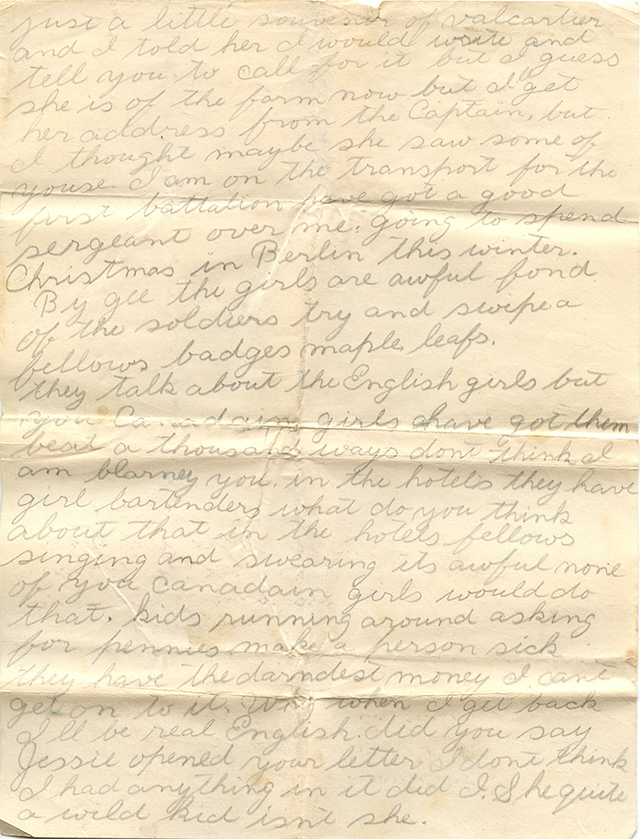 just a little souvenir of valcartier
and I told her I would write and
tell you to call for it but I guess
she is of the farm now but I'll get
her address from the Captain, but
I thought maybe she saw some of
youse. I am on the transport for the
first battation have got a good
sergeant over me. going to spend
Christmas in Berlin this winter.
By gee the girls are awful fond
of the soldiers try and swipe a
fellows badges maple leafs.
they talk about the English girls but
you Canadain girls have got them
beat a thousand ways dont think I
am blarney you. in the hotels they have
girl bartenders what do you think
about that in the hotels fellows
singing and swearing its awful none
of you Canadain girls would do
that. kids running around asking
for pennies make a person sick
they have the darndest money I cant
get on to it. Why when I get back
I'll be real English. did you say
Jessie opened your letter I dont think
I had anything in it did I. She quite
a wild kid isnt she.